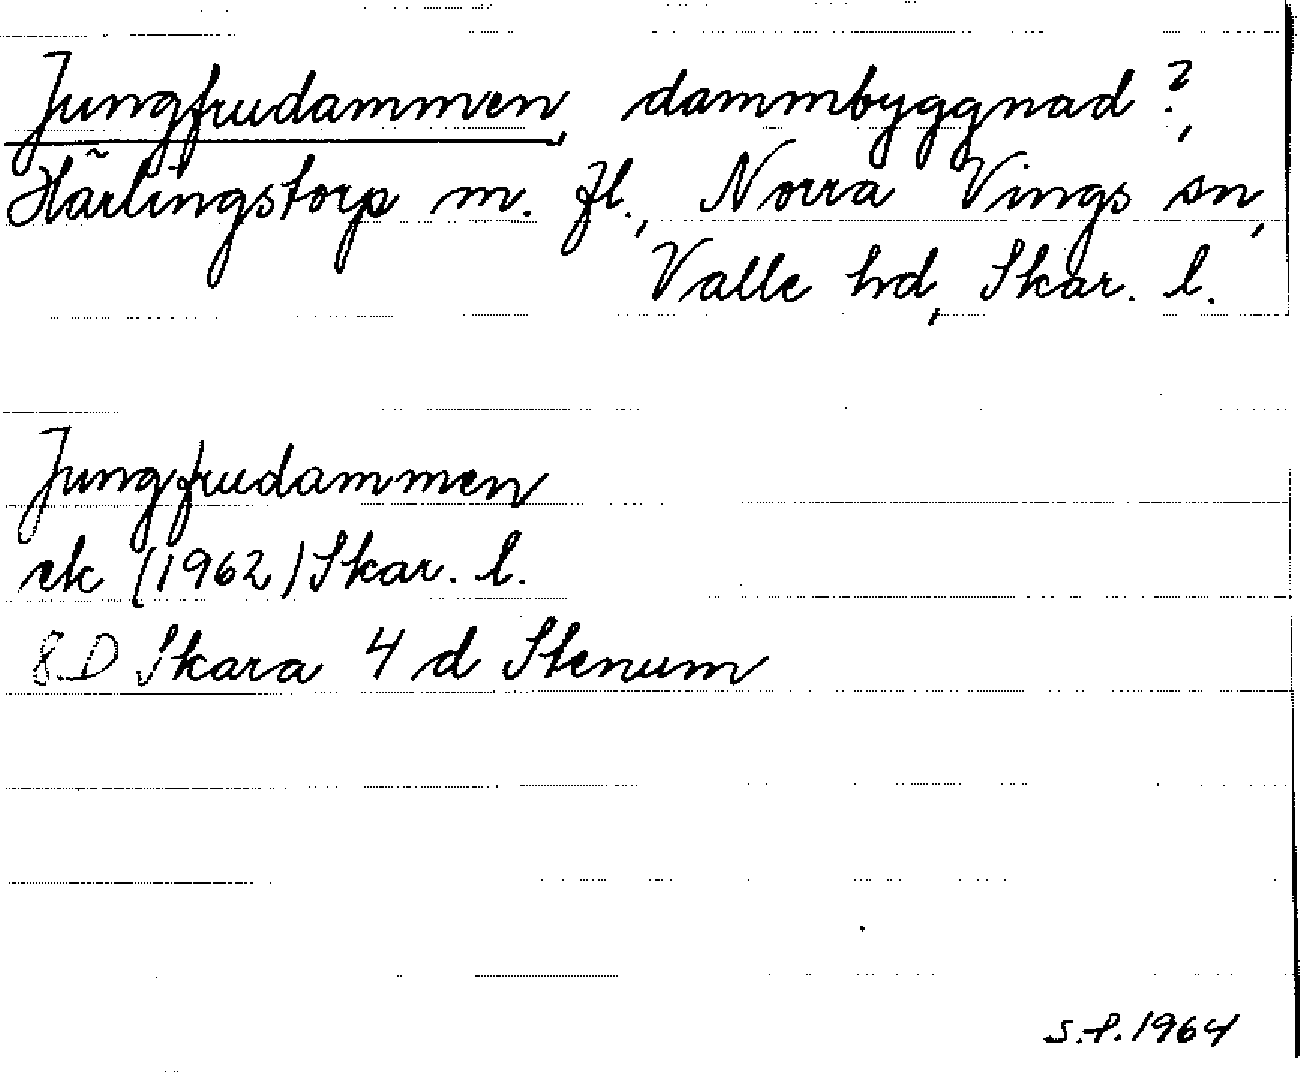 Jungfrudammen, dammbyggnad?,
Härlingstorp m. fl., Norra Vings sn,
Valle hd, Skar. l.
Jungfrudammen
ek (1962) Skar. l.
8 D Skara 4 d Stenum
S.P. 1964